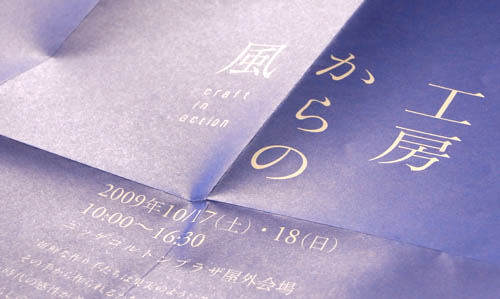 工房
からの
風
craft
in
action
2009年10/17(土)・18(日)
10:00〜16:30
ニッケコルトンプラザ屋外会場